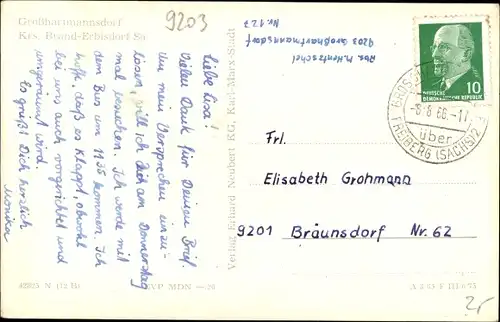 Großhartmannsdorf
Krs. Brand-Erbisdorf Sa.
9203
Abs. M. Hentzschel
9203 Großhartmannsdorf
Nr. 127
Liebe Lisa!
Vielen Dank für Deinen Brief.
Um mein Versprechen einzu-
lösen, will ich Dich am Donnerstag
mal besuchen. Ich werde mit
dem Bus um 11 35 kommen. Ich
hoffe, daß es klappt, obwohl
bei uns auch vorgerichtet und
umgeräumt wird.
Es grüßt Dich herzlich
Monika
Verlag Erhard Neubert KG, Karl-Marx-Stadt
DEUTSCHE
DEMOKRATISCHE REPUBLIK
10
-8.8.66.-11
über
FREIBERG (SACHS) 2
Frl.
Elisabeth Grohmann
9201 Bräunsdorf Nr. 62
EVP MDN —,20